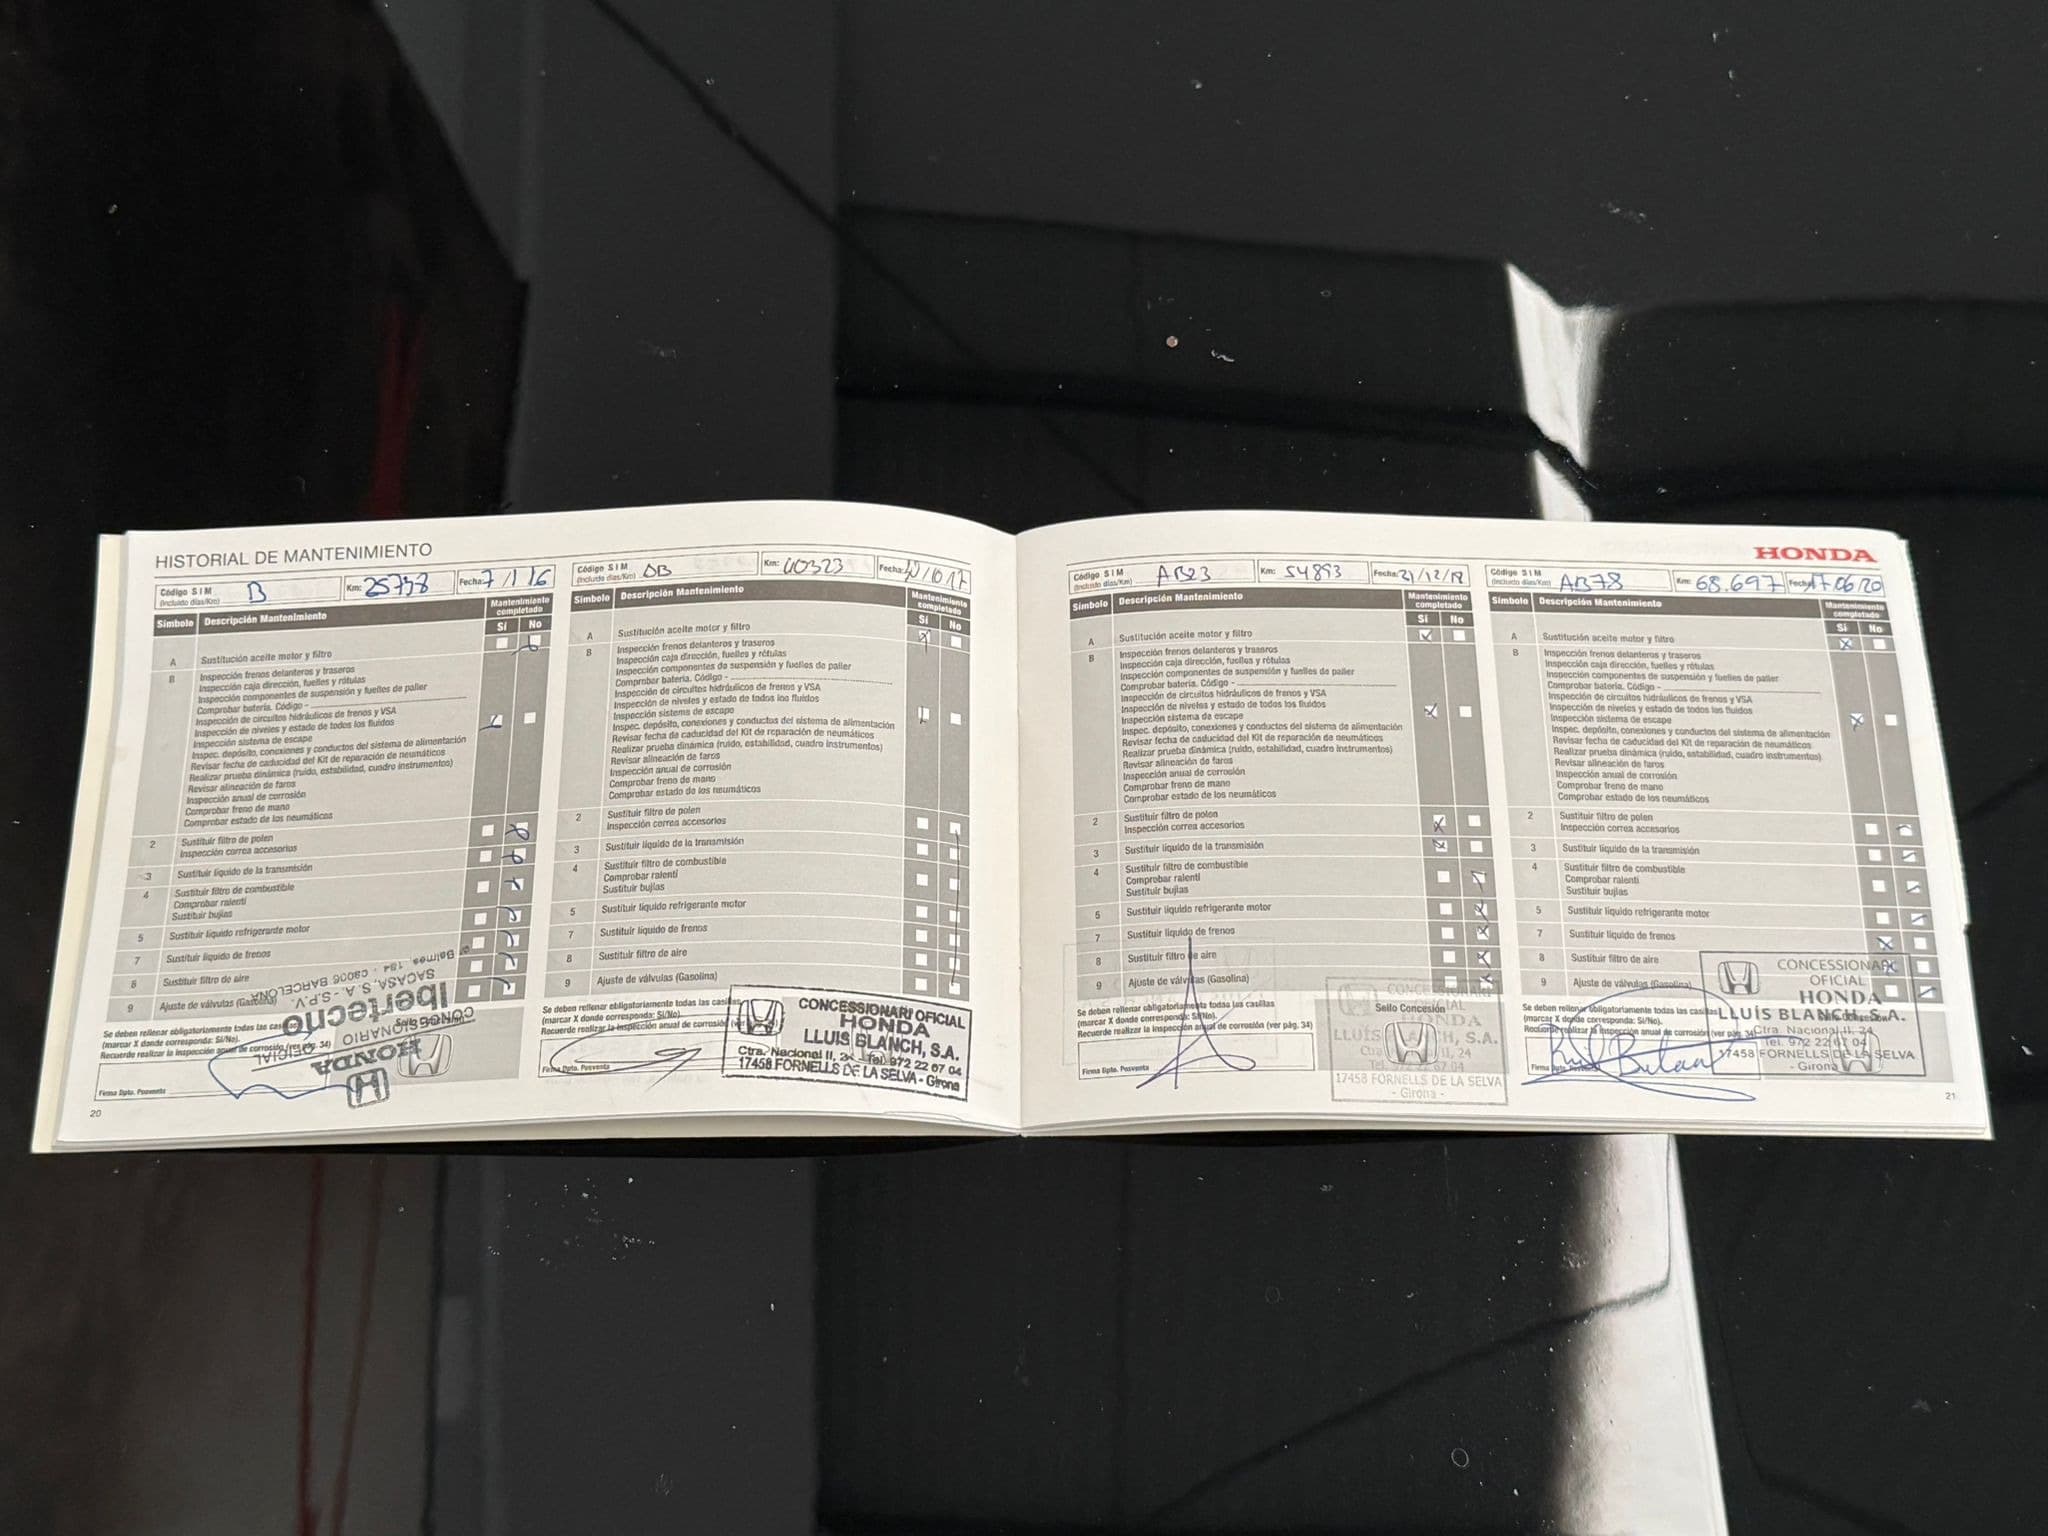 HISTORIAL DE MANTENIMIENTO
Código SIM B Km: 25738 Fecha: 7/1/16
(Incluido días/Km)
Símbolo Descripción Mantenimiento Mantenimiento completado
Sí No
A Sustitución aceite motor y filtro
B Inspección frenos delanteros y traseros
Inspección caja dirección, fuelles y rótulas
Inspección componentes de suspensión y fuelles de palier
Comprobar batería. Código -
Inspección de circuitos hidráulicos de frenos y VSA
Inspección de niveles y estado de todos los fluidos
Inspección sistema de escape
Inspec. depósito, conexiones y conductos del sistema de alimentación
Revisar fecha de caducidad del Kit de reparación de neumáticos
Realizar prueba dinámica (ruido, estabilidad, cuadro instrumentos)
Revisar alineación de faros
Inspección anual de corrosión
Comprobar freno de mano
Comprobar estado de los neumáticos
2 Sustituir filtro de polen
Inspección correa accesorios
3 Sustituir líquido de la transmisión
4 Sustituir filtro de combustible
Comprobar ralentí
Sustituir bujías
5 Sustituir líquido refrigerante motor
7 Sustituir líquido de frenos
8 Sustituir filtro de aire
9 Ajuste de válvulas (Gasolina)
Se deben rellenar obligatoriamente todas las casillas
(marcar X donde corresponda: Sí/No).
Recuerde realizar la inspección anual de corrosión (ver pág. 34)
Sello Concesión
Firma Dpto. Posventa
HONDA
CONCESIONARIO OFICIAL
Ibertecno
SACASA, S.A. - S.P.V.
Balmes, 184 - 08006 BARCELONA
20
Código SIM Km: 40323 Fecha: /10/17
(Incluido días/Km)
Símbolo Descripción Mantenimiento Mantenimiento completado
Sí No
A Sustitución aceite motor y filtro
B Inspección frenos delanteros y traseros
Inspección caja dirección, fuelles y rótulas
Inspección componentes de suspensión y fuelles de palier
Comprobar batería. Código -
Inspección de circuitos hidráulicos de frenos y VSA
Inspección de niveles y estado de todos los fluidos
Inspección sistema de escape
Inspec. depósito, conexiones y conductos del sistema de alimentación
Revisar fecha de caducidad del Kit de reparación de neumáticos
Realizar prueba dinámica (ruido, estabilidad, cuadro instrumentos)
Revisar alineación de faros
Inspección anual de corrosión
Comprobar freno de mano
Comprobar estado de los neumáticos
2 Sustituir filtro de polen
Inspección correa accesorios
3 Sustituir líquido de la transmisión
4 Sustituir filtro de combustible
Comprobar ralentí
Sustituir bujías
5 Sustituir líquido refrigerante motor
7 Sustituir líquido de frenos
8 Sustituir filtro de aire
9 Ajuste de válvulas (Gasolina)
Se deben rellenar obligatoriamente todas las casillas
(marcar X donde corresponda: Sí/No).
Recuerde realizar la inspección anual de corrosión
Firma Dpto. Posventa
CONCESSIONARI OFICIAL
HONDA
LLUIS BLANCH, S.A.
Ctra. Nacional II, 24 - Tel. 972 22 67 04
17458 FORNELLS DE LA SELVA - Girona
HONDA
Código SIM AB23 Km: 54893 Fecha: 21/12/18
(Incluido días/Km)
Símbolo Descripción Mantenimiento Mantenimiento completado
Sí No
A Sustitución aceite motor y filtro
B Inspección frenos delanteros y traseros
Inspección caja dirección, fuelles y rótulas
Inspección componentes de suspensión y fuelles de palier
Comprobar batería. Código -
Inspección de circuitos hidráulicos de frenos y VSA
Inspección de niveles y estado de todos los fluidos
Inspección sistema de escape
Inspec. depósito, conexiones y conductos del sistema de alimentación
Revisar fecha de caducidad del Kit de reparación de neumáticos
Realizar prueba dinámica (ruido, estabilidad, cuadro instrumentos)
Revisar alineación de faros
Inspección anual de corrosión
Comprobar freno de mano
Comprobar estado de los neumáticos
2 Sustituir filtro de polen
Inspección correa accesorios
3 Sustituir líquido de la transmisión
4 Sustituir filtro de combustible
Comprobar ralentí
Sustituir bujías
5 Sustituir líquido refrigerante motor
7 Sustituir líquido de frenos
8 Sustituir filtro de aire
9 Ajuste de válvulas (Gasolina)
Se deben rellenar obligatoriamente todas las casillas
(marcar X donde corresponda: Sí/No).
Recuerde realizar la inspección anual de corrosión (ver pág. 34)
Sello Concesión
Firma Dpto. Posventa
CONCESSIONARI
OFICIAL
HONDA
LLUÍS BLANCH, S.A.
Ctra. Nacional II, 24
Tel. 972 22 67 04
17458 FORNELLS DE LA SELVA
- Girona -
Código SIM AB78 Km: 68.697 Fecha: 17-06/20
(Incluido días/Km)
Símbolo Descripción Mantenimiento Mantenimiento completado
Sí No
A Sustitución aceite motor y filtro
B Inspección frenos delanteros y traseros
Inspección caja dirección, fuelles y rótulas
Inspección componentes de suspensión y fuelles de palier
Comprobar batería. Código -
Inspección de circuitos hidráulicos de frenos y VSA
Inspección de niveles y estado de todos los fluidos
Inspección sistema de escape
Inspec. depósito, conexiones y conductos del sistema de alimentación
Revisar fecha de caducidad del Kit de reparación de neumáticos
Realizar prueba dinámica (ruido, estabilidad, cuadro instrumentos)
Revisar alineación de faros
Inspección anual de corrosión
Comprobar freno de mano
Comprobar estado de los neumáticos
2 Sustituir filtro de polen
Inspección correa accesorios
3 Sustituir líquido de la transmisión
4 Sustituir filtro de combustible
Comprobar ralentí
Sustituir bujías
5 Sustituir líquido refrigerante motor
7 Sustituir líquido de frenos
8 Sustituir filtro de aire
9 Ajuste de válvulas (Gasolina)
Se deben rellenar obligatoriamente todas las casillas
(marcar X donde corresponda: Sí/No).
Recuerde realizar la inspección anual de corrosión (ver pág. 34)
Firma Dpto. Posventa
CONCESSIONARI
OFICIAL
HONDA
LLUÍS BLANCH, S.A.
Ctra. Nacional II, 24
Tel. 972 22 67 04
17458 FORNELLS DE LA SELVA
- Girona -
21